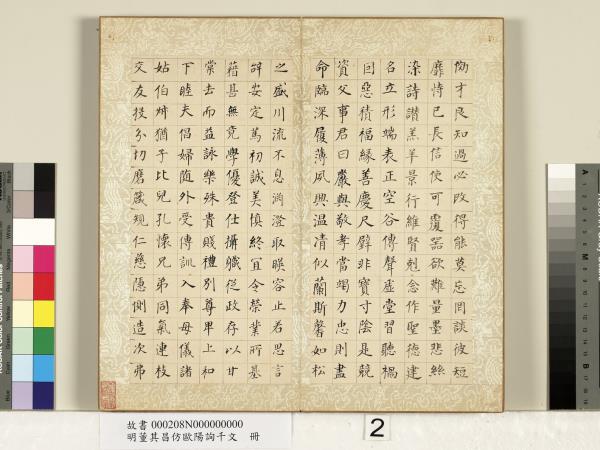 効才良知過必改得能莫忘罔談彼短
靡恃已長信使可覆器欲難量墨悲絲
染詩讚羔羊景行維賢剋念作聖德建
名立形端表正空谷傳聲虛堂習聽禍
因惡積福緣善慶尺璧非寶寸陰是競
資父事君曰嚴與敬孝當竭力忠則盡
命臨深履薄夙興温清似蘭斯馨如松
之盛川流不息淵澄取暎容止若思言
辭安定篤初誠美慎終宜令榮業所基
藉甚無竟學優登仕攝職從政存以甘
棠去而益詠樂殊貴賤禮別尊卑上和
下睦夫倡婦随外受傳訓入奉母儀諸
姑伯叔猶子比兒孔懷兄弟同氣連枝
交友投分切磨箴規仁慈隱惻造次弗
故書 000208N000000000
明董其昌仿歐陽詢千文 冊
2